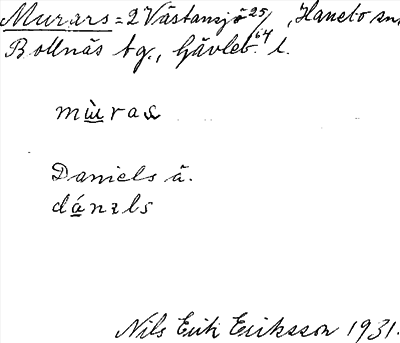 Murars = 2 Västansjö 25/64, Hanebo sn,
Bollnäs tg., Gävleb. l.
mùras
Daniels ä.
dánɪls
Nils Erik Eriksson 1931.